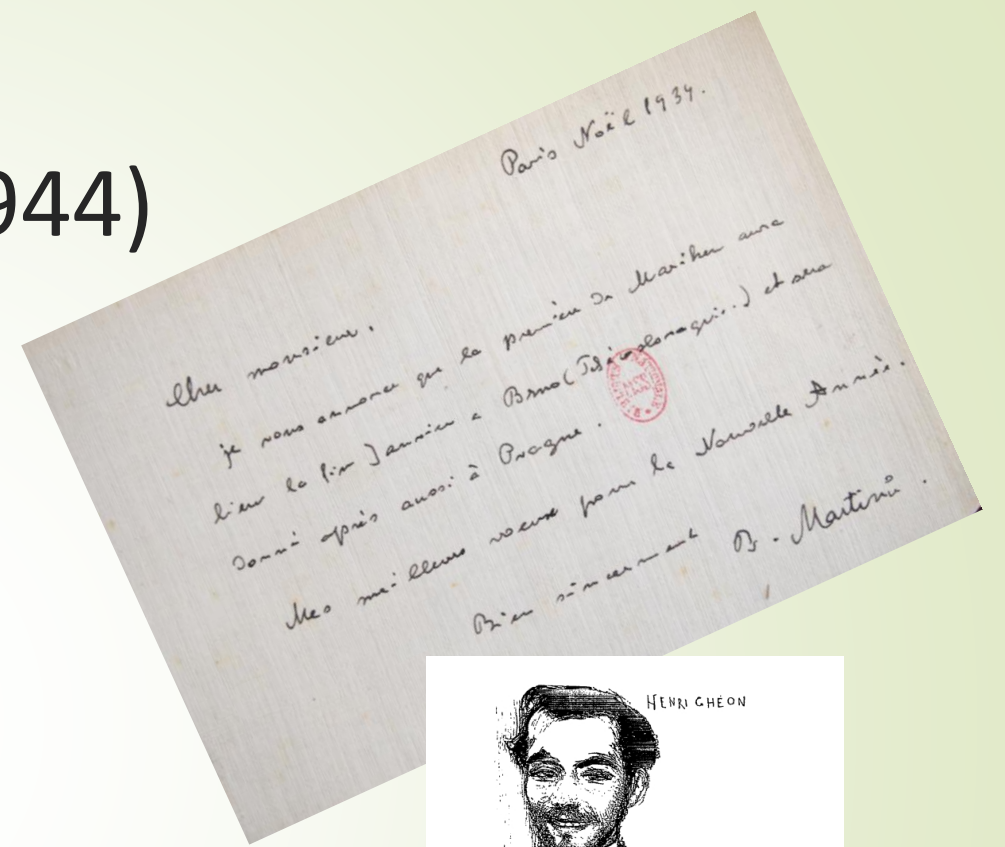 944)
Paris Noël 1934.
Cher monsieur,
je vous annonce que la première de Mariken aura
lieu la fin Janvier a Brno (Tchécoslovaquie.) et sera
donné après aussi à Prague.
Mes meilleurs voeux pour la Nouvelle Année.
Bien sincerement B. Martinů.
HENRI GHÉON